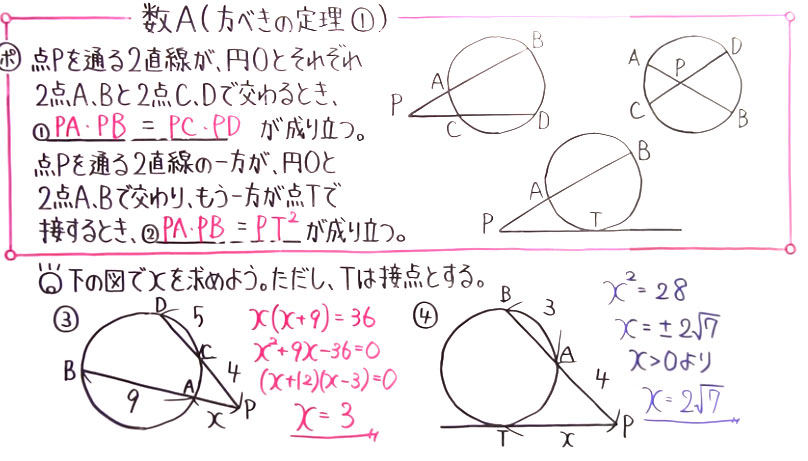 数A(方べきの定理①)
ポ 点Pを通る2直線が、円Oとそれぞれ
2点A、Bと2点C、Dで交わるとき、
①PA・PB = PC・PD が成り立つ。
点Pを通る2直線の一方が、円Oと
2点A、Bで交わり、もう一方が点Tで
接するとき、②PA・PB = PT² が成り立つ。
P A B C D
A D P C B
P A B T
下の図でxを求めよう。ただし、Tは接点とする。
③
D 5 C 4 B 9 A x P
x(x+9)=36
x²+9x-36=0
(x+12)(x-3)=0
x=3
④
B 3 A 4 T x P
x²=28
x=±2√7
x>0より
x=2√7